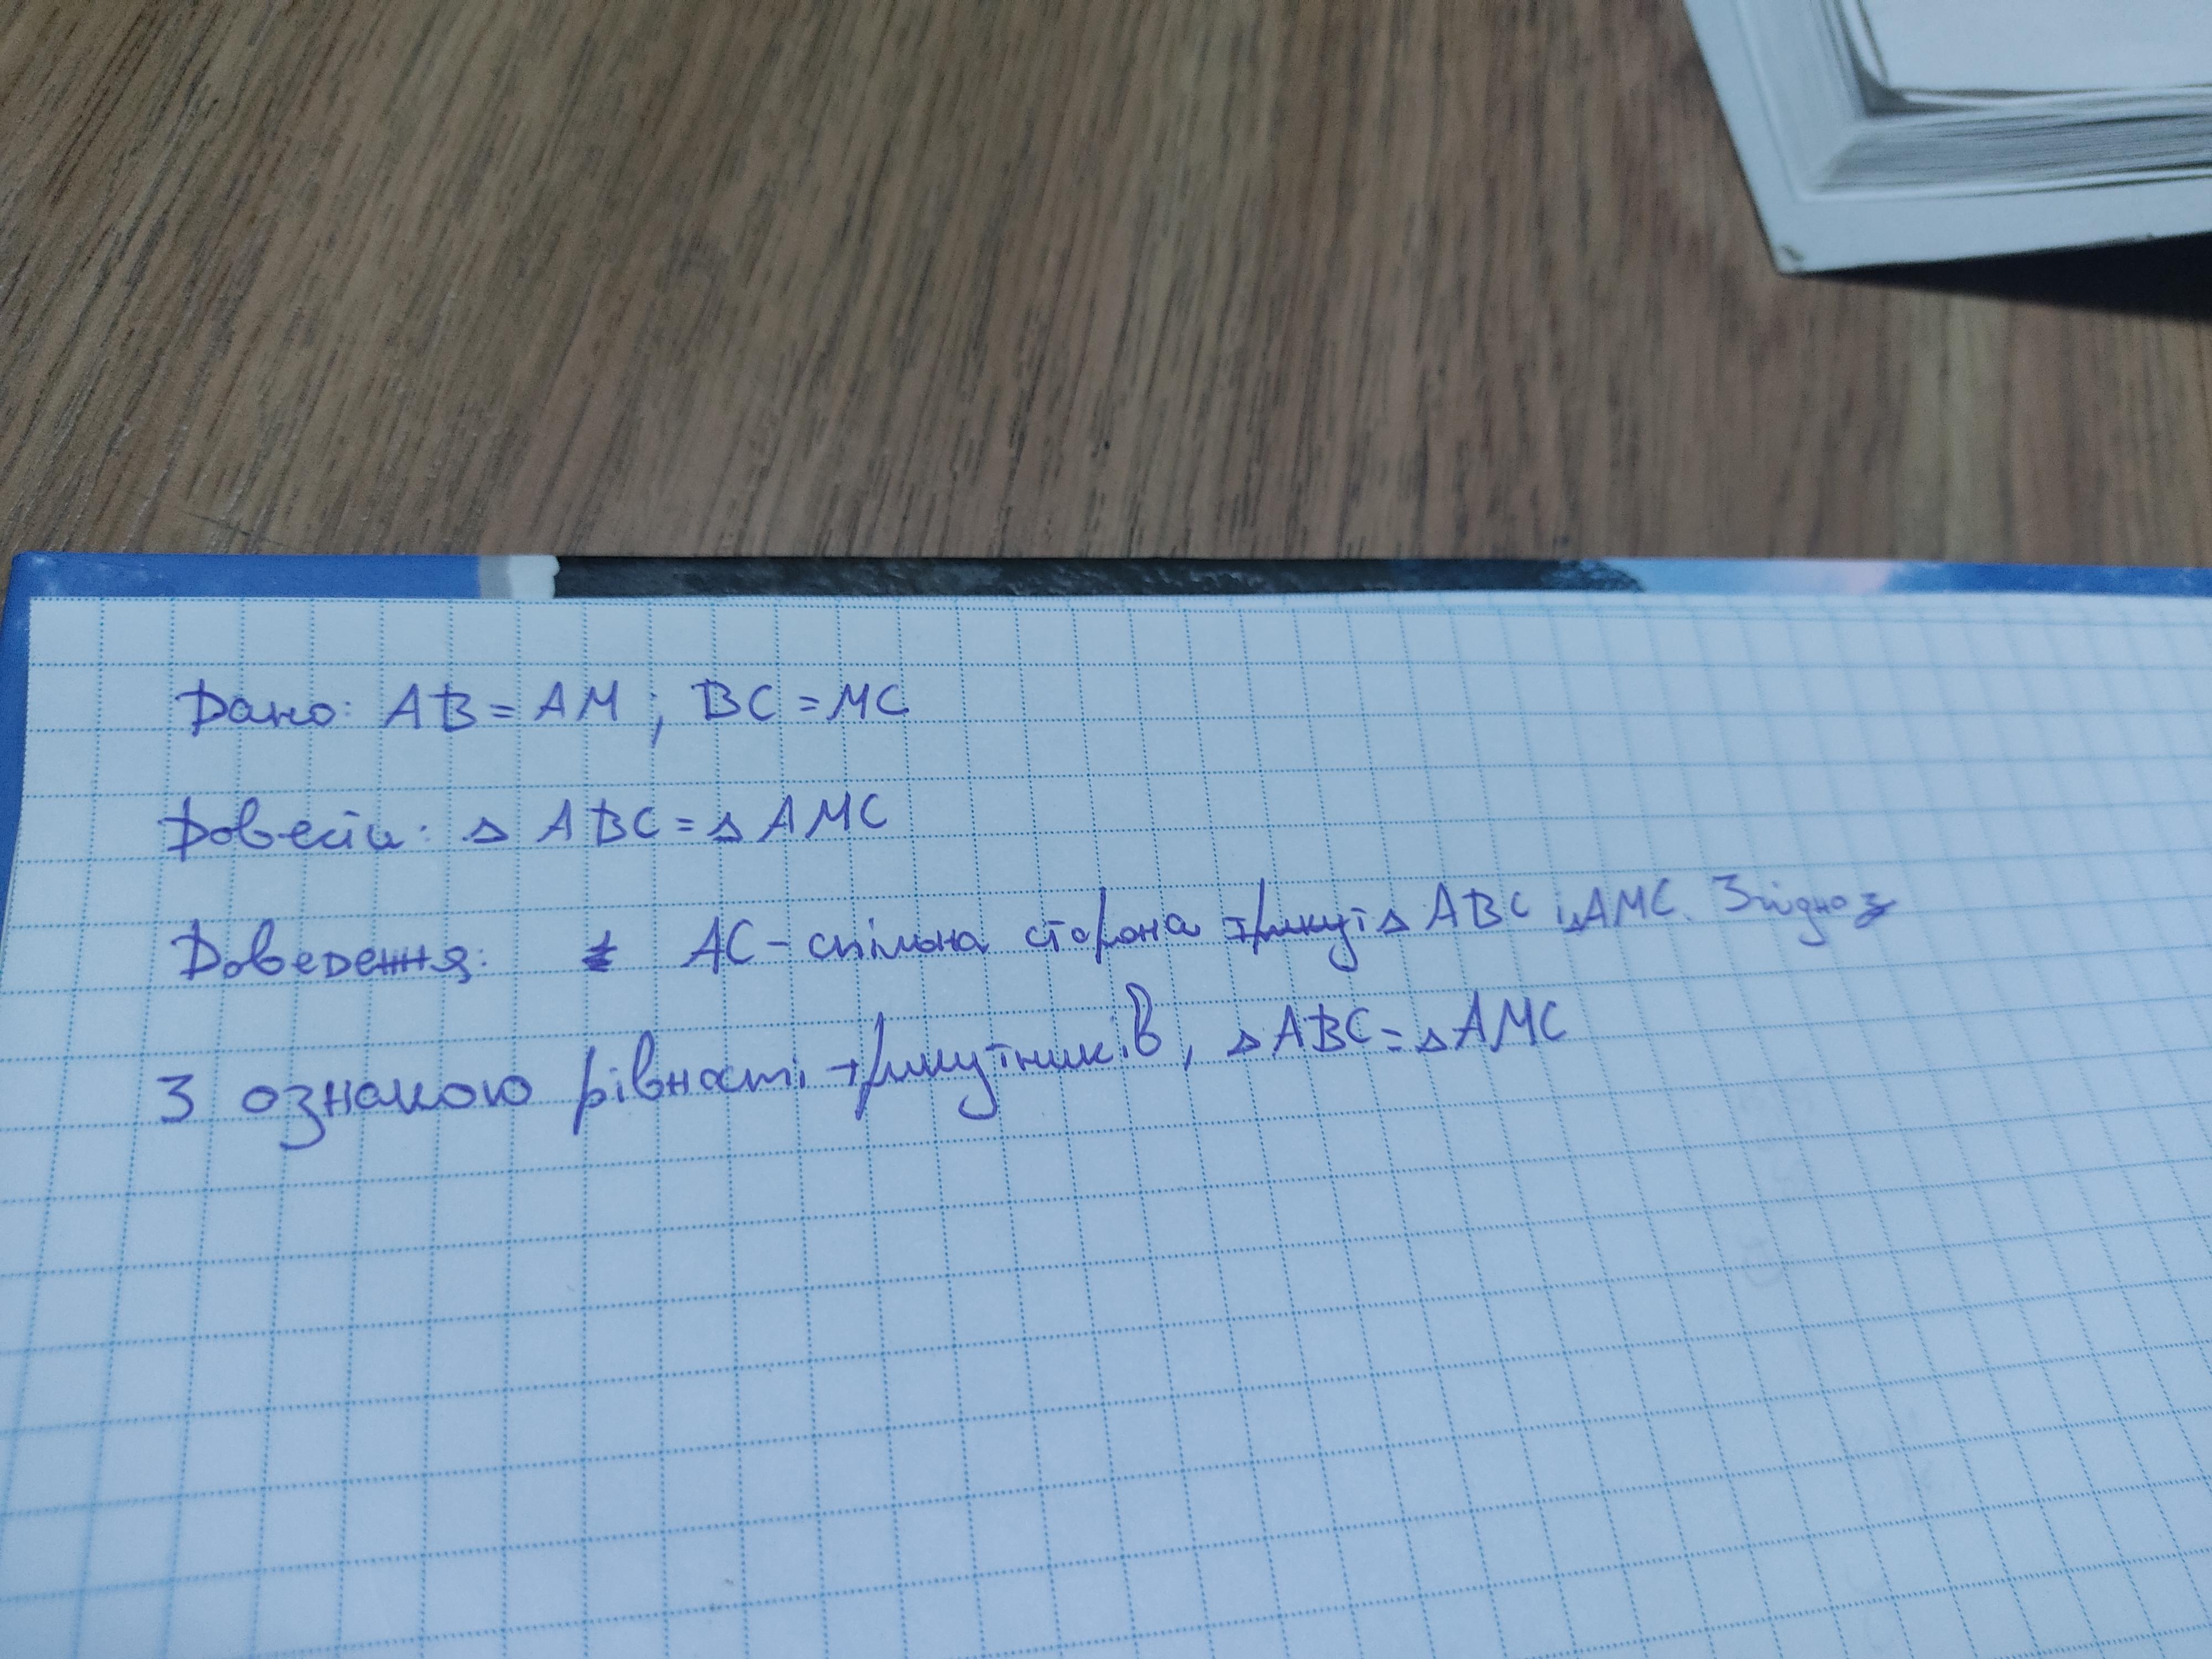 Дано: AB = AM ; BC = MC
Довести: △ ABC = △ AMC
Доведення: AC - спільна сторона △ ABC і △AMC. Згідно з
3 ознакою рівності трикутників, △ABC = △AMC